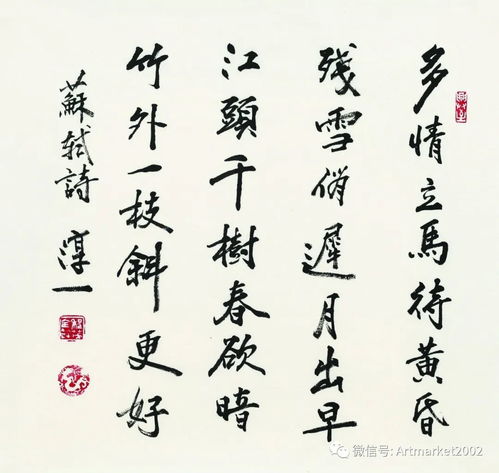 多情立馬待黄昏
殘雪消遲月出早
江頭千樹春欲暗
竹外一枝斜更好
蘇軾詩 淳一
微信号: Artmarket2002